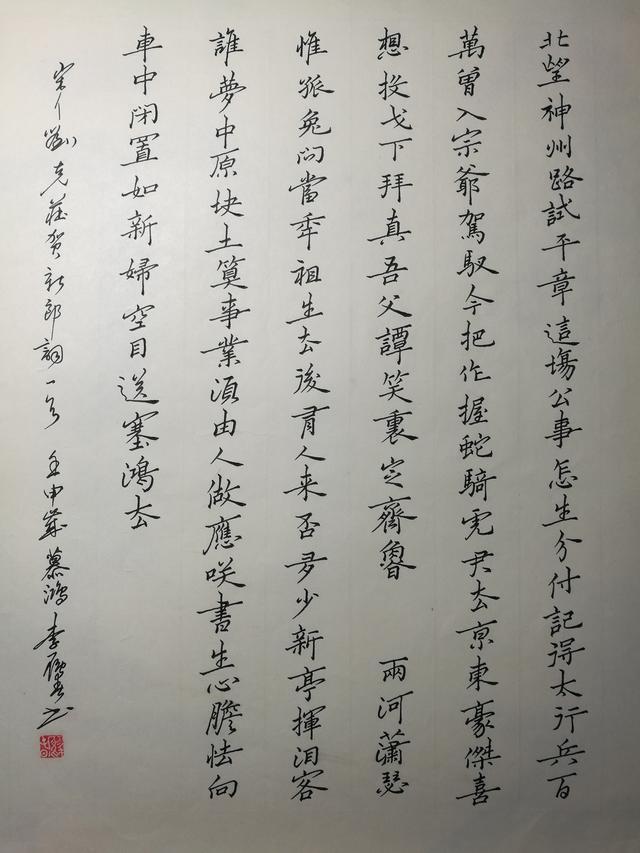 北望神州路試平章這場公事怎生分付記得太行兵百
萬曾入宗爺駕馭今把作握蛇騎虎君去京東豪傑喜
想投戈下拜真吾父譚笑裏定齊魯　兩河蕭瑟
惟狐兔問當年祖生去後有人来否多少新亭揮泪客
誰夢中原块土算事業須由人做應咲書生心膽怯向
車中閉置如新婦空目送塞鴻去
宋人劉克莊賀新郎詞一首 壬申歲慕鴻李書